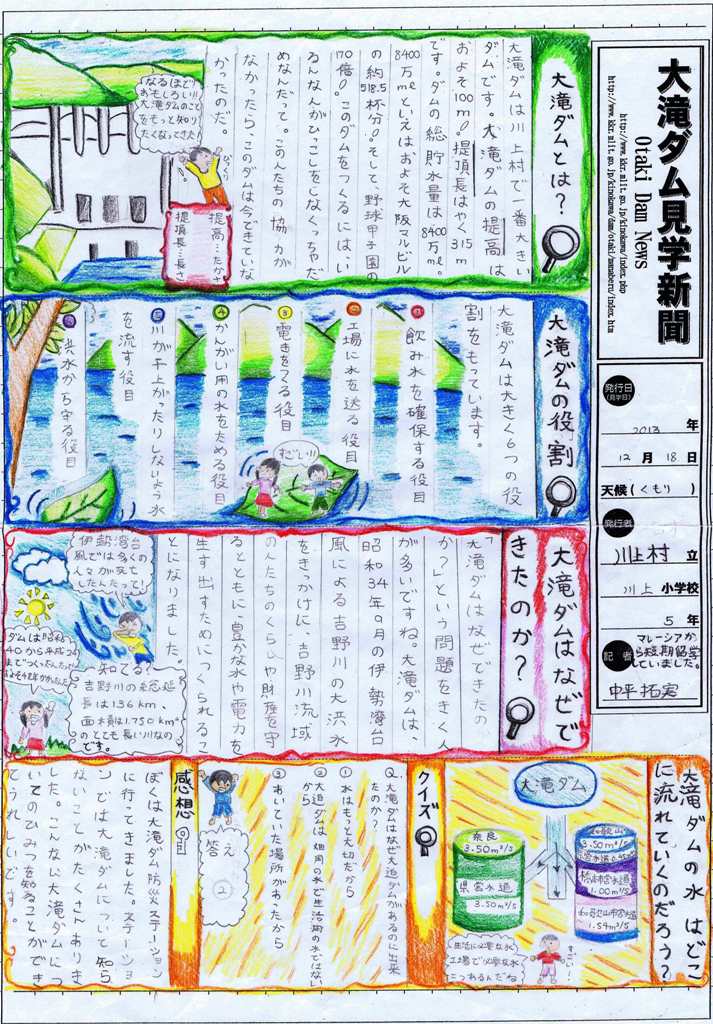 大滝ダム見学新聞
Otaki Dam News
http://www.kkr.mlit.go.jp/kinokawa/index.php
http://www.kkr.mlit.go.jp/kinokawa/dam/otaki/manaberu/index.htm
発行日
(見学日)
2013 年
12 月 18 日
天候(くもり)
発行者
川上村 立
川上 小学校
5 年
記者
マレーシアか
ら短期留学
していました。
中平 拓実
大滝ダムとは?
大滝ダムは川上村で一番大きい
ダムです。大滝ダムの提高は
およそ100m!提頂長はやく315m
です。ダムの総貯水量は8400万mℓ。
8400万mℓといえばおよそ大阪マルビル
の約518.5杯分!そして、野球甲子園の
170倍!このダムをつくるには、い
ろんなんがひっこしをしなくっちゃだ
めなんだって。このんたちの協力が
なかったら、このダムは今できていな
かったのだ。
なるほど!
おもしろい!!
大滝ダムのこと
をもっと知り
たくなってきた!
びっくり
提高…たかさ
提頂長…長さ
大滝ダムの役割
大滝ダムは大きく6つの役
割をもっています。
① 飲み水を確保する役目
② 工場に水を送る役目
③ 電きをつくる役目
④ かんがい用の水をためる役目
⑤ 川が干上がったりしないよう水
を流す役目
⑥ 洪水から守る役目
すごい!!
大滝ダムはなぜで
きたのか?
「大滝ダムはなぜできたの
か?」という問題をきく人
が多いですね。大滝ダムは、
昭和34年9月の伊勢湾台
風による吉野川の大洪水
をきっかけに、吉野川流域
のんたちのくらしや財産を守
るとともに、豊かな水や電力を
生み出すためにつくられるこ
とになりました。
伊勢湾台
風では多くの
人々が死亡
したんだって!
ダムは昭和
40から平成24
までつくったんだって!
およそ47年かかったんだ
知ってる?
吉野川の幹線延
長は136km、
面積は1.750km²
のとても長い川なの
です。
大滝ダムの水はどこ
に流れていくのだろう?
大滝ダム
奈良
3.50m³/s
県営水道
3.50m³/s
和歌山
3.50m³/s
橋本市営水道
1.00m³/s
和歌山市営水道
1.54m³/s
生活に必要な水、
工場で必要な水
につかえるんだね
すごい!
クイズ
Q.大滝ダムはなぜ大迫ダムがあるのに出来
たのか?
① 水はもっと大切だから
② 大迫ダムは畑用の水で生活用の水ではない
から
③ あいていた場所があったから
答え
②
感想
ぼくは大滝ダム防災ステーション
に行ってきました。ステーショ
ンでは大滝ダムについて知ら
ないことがたくさんありま
した。こんない大滝ダムにつ
いてのひみつを知ることができ
てうれしいです。